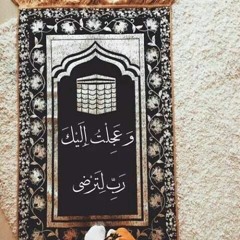 وَعَجِلْتُ إِلَيْكَ
رَبِّ لِتَرْضَى